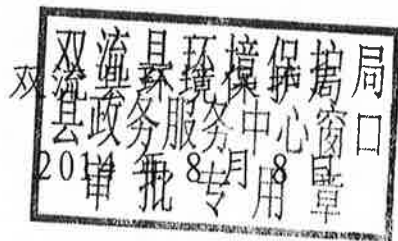 双流县环境保护局
双流县环境保护局
县政务服务中心窗口
年8月8日
审批专用章